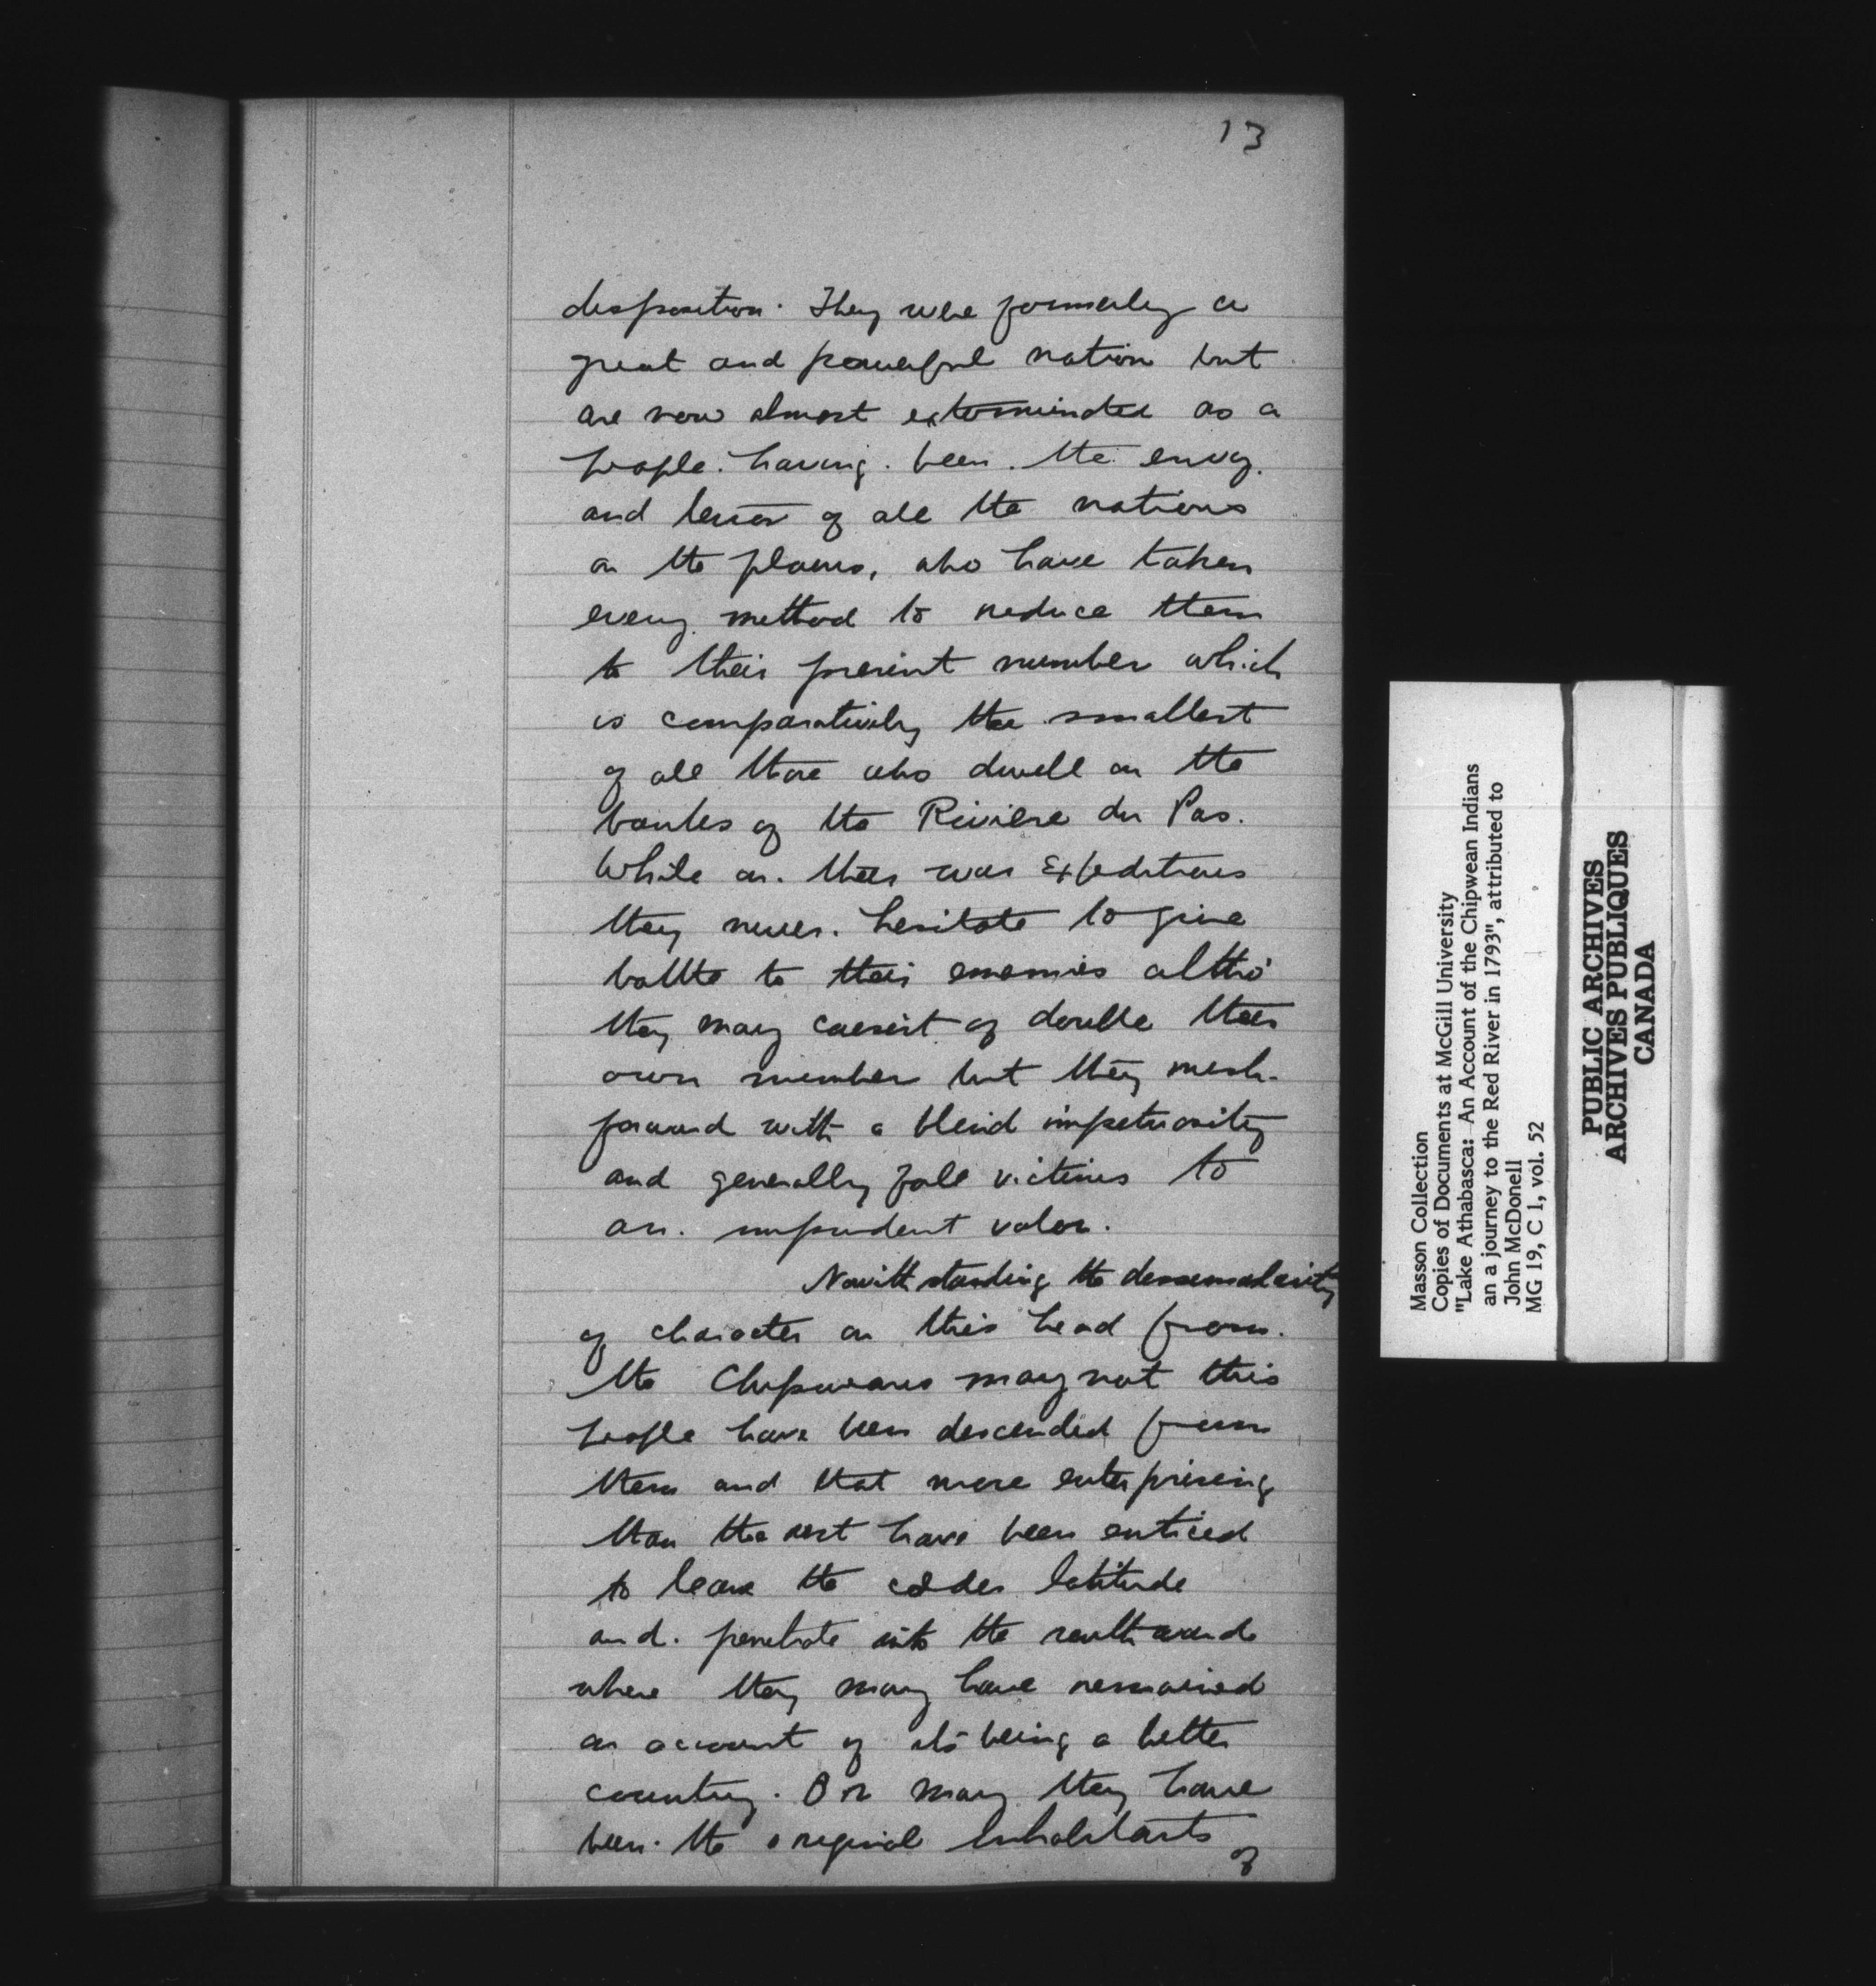 13
disposition. They were formerly a
great and powerful nation but
are now almost exterminated as a
people. having. been. the envy.
and terror of all the nations
on the plains, who have taken
every method to reduce them
to their present number which
is comparatively the smallest
of all those who dwell on the
banks of the Riviere du Pas.
While on. their war Expeditions
they never. hesitate to give
battle to their enemies altho'
they may consist of double their
own number but they rush.
forward with a blind impetuosity
and generally fall victims to
an. imprudent valor.
Nowithstanding the dissimularity
of character on this head from.
the Chipweans may not this
people have been descended from
them and that more enterprising
than the rest have been enticed
to leave the colder latitude
and. penetrate into the southwards
where they may have remained
on account of its being a better
country. Or may they have
been. the original Inhabitants
of
Masson Collection
Copies of Documents at McGill University
"Lake Athabasca: An Account of the Chipwean Indians
an a journey to the Red River in 1793", attributed to
John McDonell
MG 19, C 1, vol. 52
PUBLIC ARCHIVES
ARCHIVES PUBLIQUES
CANADA